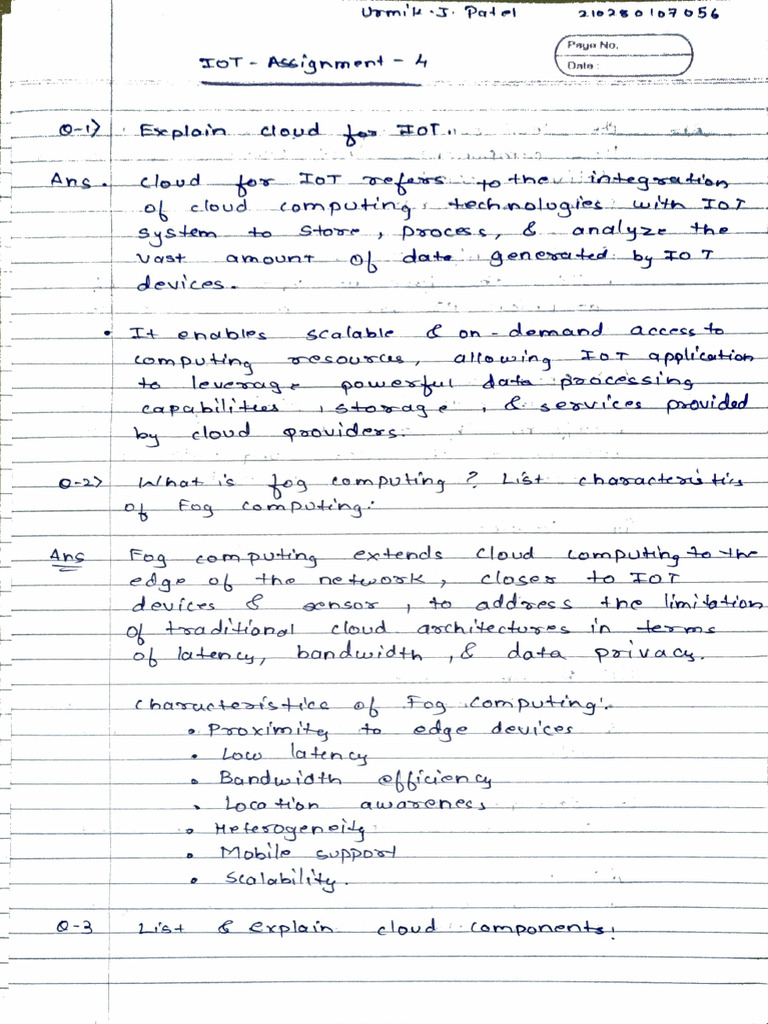 Urmik.J. Patel 210280107056
IOT - Assignment - 4
Page No.
Date :
Q-1) Explain cloud for IOT.
Ans. Cloud for IoT refers to the integration
of cloud computing technologies with IoT
system to store, process, & analyze the
vast amount of data generated by IoT
devices.
• It enables scalable & on-demand access to
computing resources, allowing IoT application
to leverage powerful data processing
capabilities, storage, & services provided
by cloud providers.
Q-2) What is fog computing? List characteristics
of Fog computing.
Ans Fog computing extends cloud computing to the
edge of the network, closer to IOT
devices & sensor, to address the limitation
of traditional cloud architectures in terms
of latency, bandwidth, & data privacy.
Characteristics of Fog computing:
• Proximity to edge devices
• Low latency
• Bandwidth efficiency
• Location awareness
• Heterogeneity
• Mobile support
• Scalability.
Q-3 List & explain cloud components: